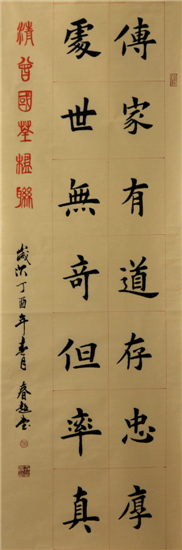 傳家有道存忠厚
處世無奇但率真
清曾國荃楹聯
歲次丁酉年春月